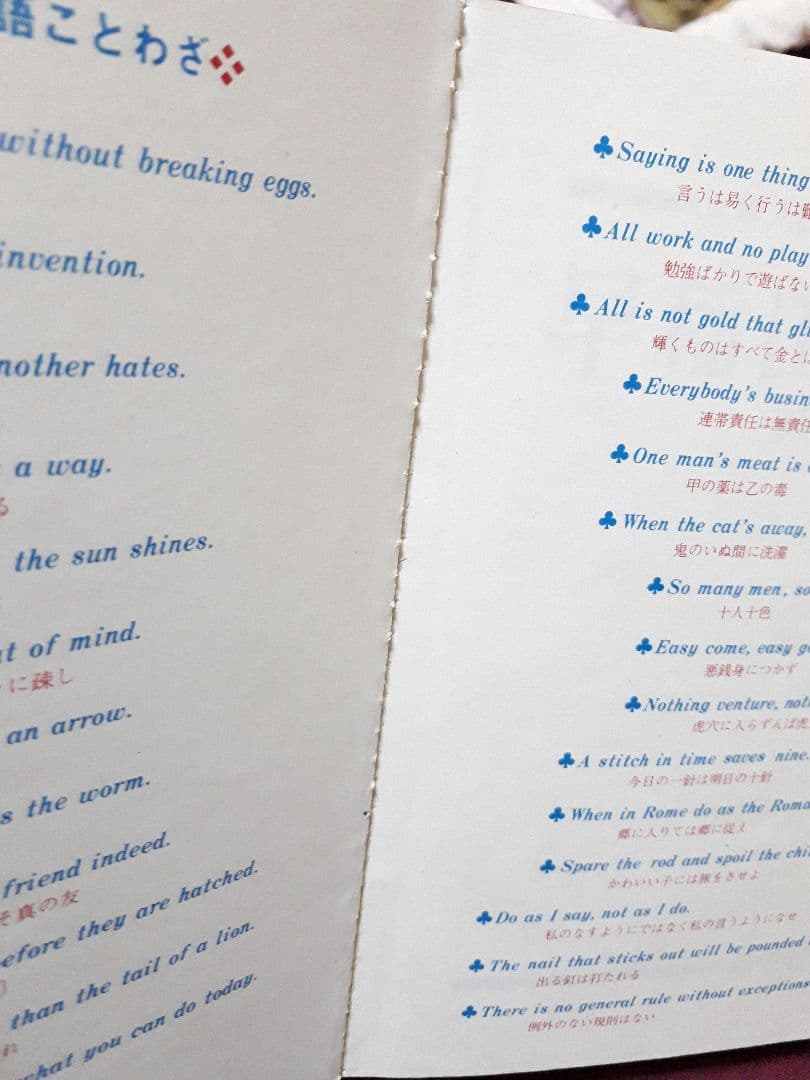 語ことわざ
without breaking eggs.
invention.
nother hates.
a way.
る
the sun shines.
t of mind.
に疎し
an arrow.
s the worm.
friend indeed.
そ真の友
efore they are hatched.
than the tail of a lion.
れ
what you can do today.
♣Saying is one thing
言うは易く行うは難
♣All work and no play
勉強ばかりで遊ばない
♣All is not gold that gli
輝くものはすべて金とは
♣Everybody's busin
連帯責任は無責任
♣One man's meat is
甲の薬は乙の毒
♣When the cat's away,
鬼のいぬ間に洗濯
♣So many men, so
十人十色
♣Easy come, easy g
悪銭身につかず
♣Nothing venture, not
虎穴に入らずんば虎
♣A stitch in time saves nine.
今日の一針は明日の十針
♣When in Rome do as the Roma
郷に入りては郷に従え
♣Spare the rod and spoil the chi
かわいい子には旅をさせよ
♣Do as I say, not as I do.
私のなすようにではなく私の言うようになせ
♣The nail that sticks out will be pounded
出る釘は打たれる
♣There is no general rule without exceptions
例外のない規則はない